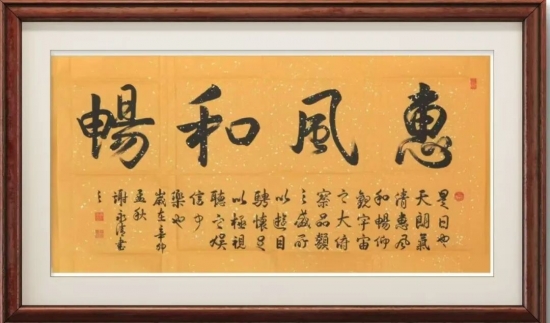 惠風和暢
是日也
天朗氣
清惠風
和暢仰
觀宇宙
之大俯
察品類
之盛所
以遊目
騁懷足
以極視
聽之娛
信可
樂也
歲在辛卯
孟秋
謝永書